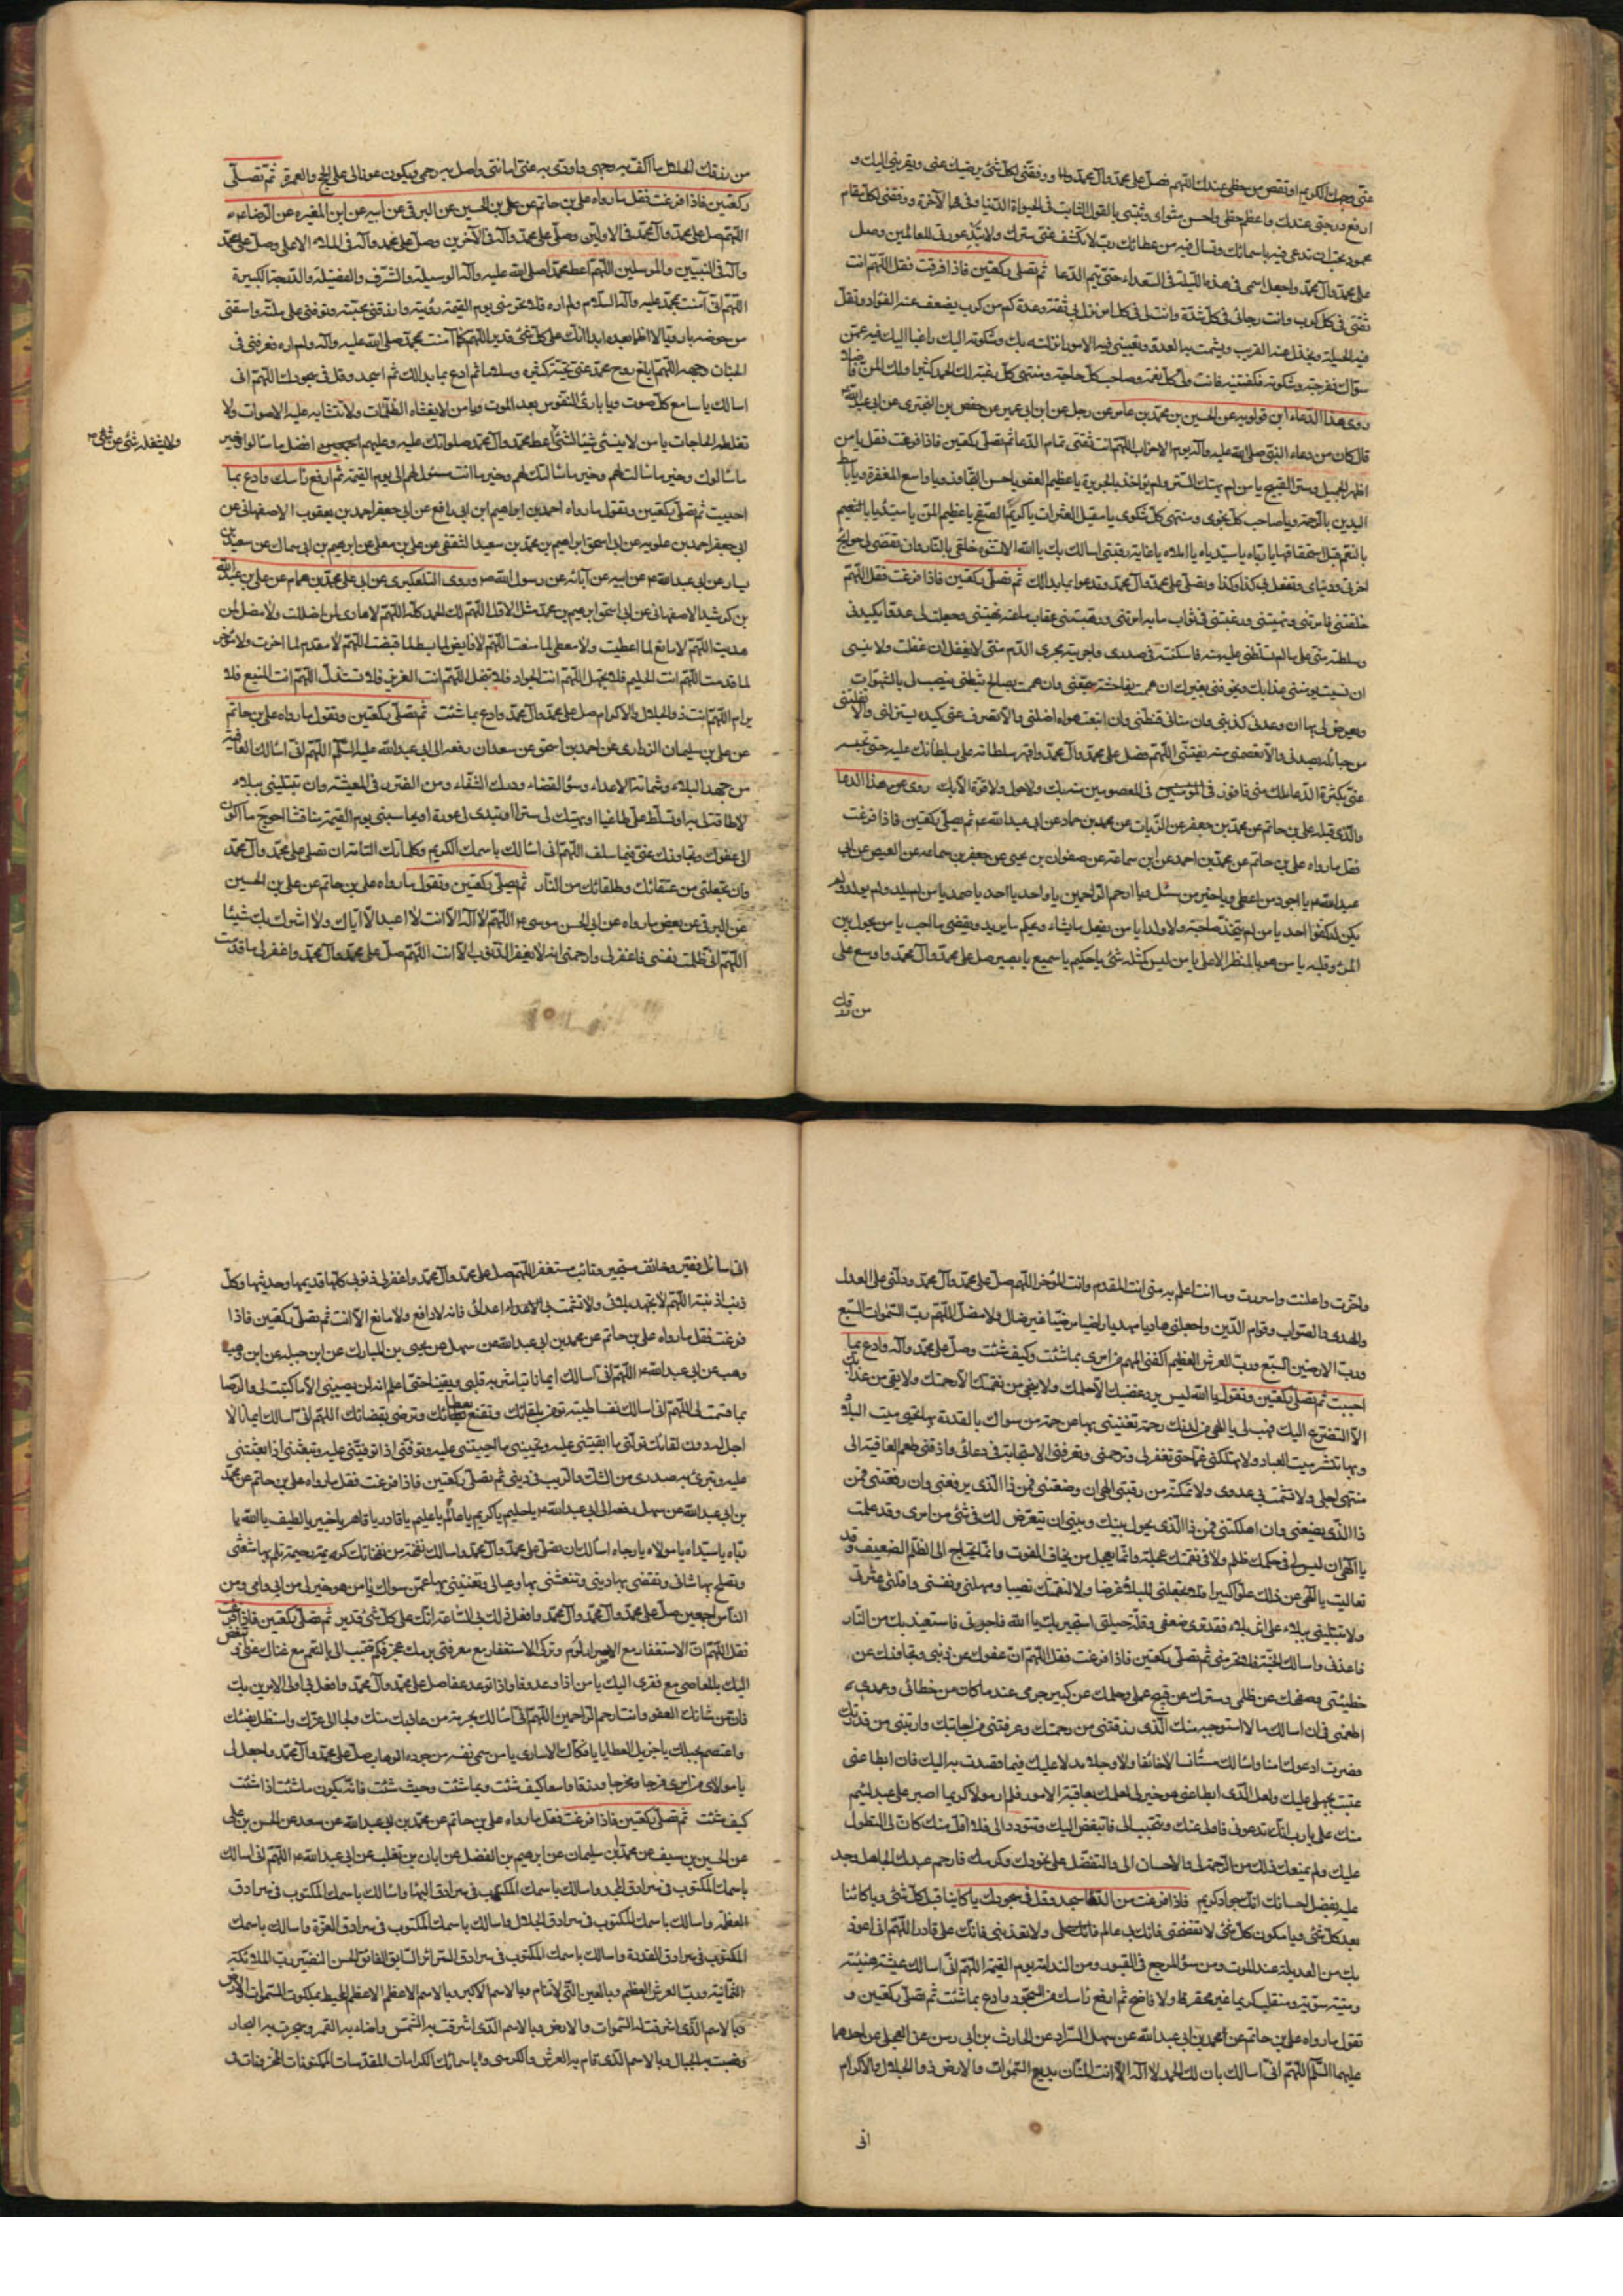 عنّي وجهك الكريم او تنقص من حظي عندك اللّهم فصل على محمّد وآل محمّد ووفقني لكل شئ يرضيك عني ويقربني اليك و
ارفع درجتي عندك واعظم حظي واحسن مثواى وثبتني بالقول الثابت في الحيوة الدّنيا وفي الآخرة ووفقني لكل مقام
محمود تحب ان تدعى فيه باسمائك وتسال فيه من عطائك ربّ لا تكشف عنّي سترك ولا تبد عورتي للعالمين وصل
على محمّد وآل محمّد واجعل اسمي في هذه اللّيلة في السّعداء حتى يتم الدّعا ثم تصلى ركعتين فاذا فرغت فقل اللّهم انت
ثقتي في كل كرب وانت رجائي في كل شدّة وانت لي في كل امر نزل بي ثقة وعدة كم من كرب يضعف عنه الفؤاد وتقل
فيه الحيلة ويخذل عنه القريب ويشمت به العدوّ وتعييني فيه الامور انزلته بك وشكوته اليك راغبا اليك فيه عمّن
سواك ففرجته وشكوته فكفيتنيه فانت وليّ كلّ نعمة وصاحب كلّ حاجة ومنتهى كلّ رغبة لك الحمد كثيرا ولك المنّ فاضلا
روى هذا الدّعاء ابن قولويه عن الحسين بن محمّد بن عامر عن رجل عن ابن ابي عمير عن حفص بن البختري عن ابي عبد الله ع
قال كان من دعاء النّبيّ صلى الله عليه وآله يوم الاحزاب اللّهم انت ثقتي تمام الدّعا ثم تصلّي ركعتين فاذا فرغت فقل يا من
اظهر الجميل وستر القبيح يا من لم يهتك السّتر ولم يؤاخذ بالجريرة يا عظيم العفو يا حسن التّجاوز ويا واسع المغفرة ويا باسط
اليدين بالرّحمة ويا صاحب كلّ نجوى ومنتهى كلّ شكوى يا مقيل العثرات يا كريم الصّفح يا عظيم المنّ يا سيّدى يا مبتدئا
بالنّعم قبل استحقاقها يا ربّاه يا سيّداه يا املاه يا غاية رغبتي اسالك بك يا الله الا تشوّه خلقي بالنّار وان تقضى لي حوائج
اخرتي ودنياى وتفعل بي كذا وكذا وتصلّي على محمّد وآل محمّد وتدعوا بما بدالك ثم تصلّي ركعتين فاذا فرغت فقل اللّهم
خلقتني فامرتني ونهيتني ورغبتني في ثواب ما به امرتني ورهبتني عقاب ما عنه نهيتني وجعلت لي عدوّا يكيدني
وسلطته منّي على ما لم تسلّطني عليه منه فاسكنته في صدرى واجريته مجرى الدّم منّي لا يغفل ان غفلت ولا ينسى
ان نسيت يؤمنني عذابك ويخوفني بغيرك ان هممت بفاحشة شجّعني وان هممت بصالح ثبّطني ينصب لي بالشّهوات
ويعرض لي بها ان وعدني كذبني وان منّاني قنطني وان اتبعت هواه اضلني والا تصرف عني كيده يستزلني والا تفلتني
من حبائله يصدني والا تعصمني منه يفتنّي اللّهم فصل على محمّد وآل محمّد واقهر سلطانه على بسلطانك عليه حتى تحبسه
عني بكثرة الدّعا لك منّي فافوز في المعصومين منه بك ولا حول ولا قوّة الّا بك روى عن هذا الدعا
والّذى قبله على بن حاتم عن محمّد بن جعفر عن الزّيات عن محمد بن حماد عن ابي عبد الله ع ثم تصلّي ركعتين فاذا فرغت
فقل ما رواه على بن حاتم عن محمّد بن احمد عن ابن سماعة عن صفوان بن يحيى عن جعفر بن سماعه عن العيص عن ابي
عبد الله ع يا اجود من اعطى ويا خير من سئل ويا ارحم الرّاحمين يا واحد يا احد يا صمد يا من لم يلد ولم يولد ولم
يكن له كفوا احد يا من لم يتّخذ صاحبة ولا ولدا يا من يفعل ما يشاء ويحكم ما يريد ويقضي ما احب يا من يحول بين
المرء وقلبه يا من هو بالمنظر الاعلى يا من ليس كمثله شئ يا حكيم يا سميع يا بصير صل على محمّد وآل محمّد واوسع على
من رزقك
من رزقك الحلال ما اكفّ به وجهي واودّى به عني امانتي واصل به رحمي ويكون عونا لي على الحجّ والعمرة ثمّ تصلّي
ركعتين فاذا فرغت فقل ما رواه على بن حاتم عن على بن الحسين عن البرقي عن ابيه عن ابن المغيره عن الرّضا عم
اللّهم صل على محمّد وآل محمّد في الاوّلين وصلّ على محمّد وآله في الآخرين وصلّ على محمد وآله في الملاء الاعلى وصلّ على محمّد
وآله في النبيّين والمرسلين اللّهم اعط محمّدا صلى الله عليه وآله الوسيلة والشّرف والفضيلة والدّرجة الكبيرة
اللّهم انّي آمنت بمحمّد عليه وآله السّلام ولم اره فلا تحرمني يوم القيمة رؤيته وارزقني صحبته وتوفني على ملّته واسقني
من حوضه مشربا رويّا لا اظما بعده ابدا انّك على كلّ شئ قدير اللّهم كما آمنت بمحمّد صلى الله عليه وآله ولم اره فعرفني في
الجنان وجهه اللّهم ابلغ روح محمّد عنّي تحيّة كثيرة وسلاما ثم ادع بما بدالك ثم اسجد وقل في سجودك اللّهم اني
اسالك يا سامع كلّ صوت ويا بارئ النفوس بعد الموت ويا من لا يغشاه الظلمات ولا تتشابه عليه الاصوات ولا
تغلطه الحاجات يا من لا ينسى شيئا لشئ اعط محمّد وآل محمّد صلواتك عليه وعليهم افضل ما سالوا وخير
ولا يشغله شئ عن شئ
ما سالوك وخير ما سالت لهم وخير ما سالك لهم وخير ما انت مسئول لهم الى يوم القيمة ثم ارفع راسك وادع بما
احببت ثم تصلّي ركعتين وتقول ما رواه احمد بن ابراهيم ابن ابي رافع عن ابي جعفر احمد بن يعقوب الاصفهاني عن
ابي جعفر احمد بن علويه عن ابي اسحق ابراهيم بن محمّد بن سعيد الثقفي عن على بن معلى عن ابرهيم بن ابي سماك عن سعيد
يسار عن ابي عبد الله ع عن ابيه عن آبائه عن رسول الله ص وروى التلعكبرى عن ابي على محمّد بن همام عن على بن عبد الله
بن كوشيد الاصفهاني عن ابي اسحق ابرهيم بن محمّد مثل الاوّل اللّهم لك الحمد كلّه اللّهم لا هادى لمن اضللت ولا مضلّ لمن
هديت اللّهم لا مانع لما اعطيت ولا معطي لما منعت اللّهم لا قابض لما بسطت ولا باسط لما قبضت اللّهم لا مقدم لما اخرت ولا مؤخّر
لما قدمت اللّهم انت الحليم فلا تجهل اللّهم انت الجواد فلا تبخل اللّهم انت العزيز فلا تستذلّ اللّهم انت المنيع فلا
ترام اللّهم انت ذو الجلال والاكرام صل على محمّد وآل محمّد وادع بما شئت ثم تصلّي ركعتين وتقول ما رواه على بن حاتم
عن على بن سليمان الزراري عن احمد بن اسحق عن سعدان رفعه الى ابي عبد الله عليه السّلم اللّهم انّي اسالك العافية
من جهد البلاء وشماتة الاعداء وسؤ القضاء ودرك الشقاء ومن الضّرر في المعيشة وان تبتليني ببلاء
لا طاقة لي به او تسلّط على طاغيا او تهتك لي سترا او تبدى لي عورة او تحاسبني يوم القيمة مناقشا احوج ما اكون
الى عفوك وتجاوزك عنّي فيما سلف اللّهم انّي اسالك باسمك الكريم وكلماتك التامّة ان تصلي على محمّد وآل محمّد
وان تجعلني من عتقائك وطلقائك من النّار ثم تصلّي ركعتين وتقول ما رواه على بن حاتم عن على بن الحسين
عن البرقي عن بعض ما رواه عن ابي الحسن موسى ع اللّهم لا اله الّا انت لا اعبد الّا ايّاك ولا اشرك بك شيئا
اللّهم انّي ظلمت نفسي فاغفر لي وارحمني انه لا يغفر الذّنوب الّا انت اللّهم صلّ على محمّد وآل محمّد واغفر لي ما قدّمت
واخّرت واعلنت واسررت وما انت اعلم به منّي انت المقدم وانت المؤخر اللّهم صلّ على محمّد وآل محمّد ودلّني على العدل
والهدى والصّواب وقوام الدّين واجعلني هاديا مهديا راضيا مرضيّا غير ضال ولا مضلّ اللّهم ربّ السّموات السّبع
وربّ الارضين السّبع وربّ العرش العظيم اكفني المهم من امرى بما شئت وكيف شئت وصلّ على محمّد وآله وادع بما
احببت ثم تصلّي ركعتين وتقول يا الله ليس يرد غضبك الّا حلمك ولا ينجى من نقمتك الّا رحمتك ولا ينجى من عذابك
الّا التضرّع اليك فهب لي يا الهي من لدنك رحمة تغنيني بها عن رحمة من سواك بالقدرة بها تحيى ميت البلاد
وبها تنشر ميت العباد ولا تهلكني غمّا حتى تغفر لي وترحمني وتعرفني الاستجابة في دعائي واذقني طعم العافية الى
منتهى اجلي ولا تشمت بي عدوى ولا تمكنه من رقبتي الهي ان وضعتني فمن ذا الّذى يرفعني وان رفعتني فمن
ذا الّذى يضعني وان اهلكتني فمن ذا الّذى يحول بينك وبيني او يتعرّض لك في شئ من امرى وقد علمت
يا الهي ان ليس في حكمك ظلم ولا في نقمتك عجلة وانّما يعجل من يخاف الفوت وانّما يحتاج الى الظّلم الضعيف وقد
تعاليت يا الهي عن ذلك علوّا كبيرا فلا تجعلني للبلاء غرضا ولا لنقمتك نصبا ومهلني ونفسني واقلني عثرتي
ولا تبتليني ببلاء على اثر بلاء فقد ترى ضعفي وقلّة حيلتي استجير بك يا الله فاجرني واستعيذ بك من النّار
فاعذني واسالك الجنّة فلا تحرمني ثم تصلّي ركعتين فاذا فرغت فقل اللّهم انّ عفوك عن ذنبي وتجاوزك عن
خطيئتي وصفحك عن ظلمي وسترك عن قبيح عملي وحلمك عن كبير جرمي عند ما كان من خطائي وعمدى
اطمعني في ان اسالك ما لا استوجبه منك الّذى رزقتني من رحمتك وعرفتني من اجابتك واريتني من قدرتك
فصرت ادعوك امنا واسالك مستأنسا لا خائفا ولا وجلا مدلا عليك فيما قصدت به اليك فان ابطا عني
عتبت بجهلي عليك ولعل الّذى ابطا عني هو خير لي لعلمك بعاقبة الامور فلم ار مولا كريما اصبر على عبد لئيم
منك على يا رب انّك تدعوني فاولى عنك وتتحبب الى فاتبغض اليك وتتودد الى فلا اقبل منك كان لي التطول
عليك ولم يمنعك ذلك من الرّحمة لي والاحسان الى والتفضّل على بجودك وكرمك فارحم عبدك الجاهل وجد
عليه بفضل احسانك انّك جواد كريم فاذا فرغت من الدّعا سجد وقل في سجودك يا كائنا قبل كلّ شئ ويا كائنا
بعد كلّ شئ ويا مكون كلّ شئ لا تفضحني فانّك بي عالم ولا تعذبني فانّك على قادر اللّهم انّي اعوذ
بك من العديلة عند الموت ومن سؤ المرجع في القبور ومن الندامة يوم القيمة اللّهم انّي اسالك عيشة هنيئة
وميتة سوّية ومنقلبا كريما غير مخز ولا فاضح ثم ارفع راسك من السجود وادع بما شئت ثم تصلّي ركعتين و
تقول ما رواه على بن حاتم عن محمد بن ابي عبد الله عن سهل عن السّراد عن الحارث بن ابي رسن عن العجلى عن احدهما
عليهما السّلم اللّهم انّي اسالك بان لك الحمد لا اله الّا انت المنّان بديع السّموات والارض ذو الجلال والاكرام
انّي
انّي سائل فقير وخائف مستجير وتائب مستغفر اللّهم صل على محمّد وآل محمّد واغفر لي ذنوبي كلّها قديمها وحديثها وكلّ
ذنب اذنبته اللّهم لا تجهد بلائي ولا تشمت بي اعدائي فانّه لا دافع ولا مانع الّا انت ثم تصلّي ركعتين فاذا
فرغت فقل ما رواه على بن حاتم عن محمد بن ابي عبد الله عن سهل عن يحيى بن المبارك عن ابن جبله عن ابن
وهب عن ابي عبد الله ع اللّهم انّي اسالك ايمانا تباشر به قلبي ويقينا حتى اعلم انه لن يصيبني الّا ما كتبت لي والرّضا
بما قسمت لي اللّهم انّي اسالك نفسا طيبة تؤمن بلقائك وتقنع بعطائك وترضى بقضائك اللّهم انّي اسالك ايمانا لا
اجل له دون لقائك تولّني ما ابقيتني عليه وتحييني ما احييتني عليه وتوفّني اذا توفيتني عليه وتبعثني اذا بعثتني
عليه وتبرئ به صدرى من الشّك والرّيب في ديني ثم تصلّي ركعتين فاذا فرغت فقل ما رواه على بن حاتم عن محمّد
بن ابي عبد الله عن سهل رفعه الى ابي عبد الله ع يا حليم يا كريم يا عالم يا عليم يا قادر يا قاهر يا خبير يا لطيف يا الله يا
ربّاه يا سيّداه يا مولاه يا رجاه اسالك ان تصلّي على محمّد وآل محمّد واسالك نفحة من نفحاتك كريمة رحيمة تلم بها شعثي
وتصلح بها شاني وتقضى بها ديني وتنعشني بها وعيالي وتغنيني بها عمن سواك يا من هو خير لي من ابي وامي ومن
النّاس اجمعين صلّ على محمّد وآل محمّد وافعل ذلك بي السّاعة انّك على كلّ شئ قدير ثم تصلّي ركعتين فاذا فرغت
فقل اللّهم انّ الاستغفار مع الاصرار لؤم وترك الاستغفار مع معرفتي بكرمك عجز فكم تتحبب الى بالنّعم مع غناك عنّي واتبغّض
اليك بالمعاصي مع فقرى اليك يا من اذا وعد وفا واذا توعد عفا صل على محمّد وآل محمّد وافعل بي اولى الامرين بك
فانّ من شانك العفو وانت ارحم الرّاحمين اللّهم انّي اسالك بحرمة من عاذ بك منك ولجا الى عزّك واستظل بفيئك
واعتصم بحبلك يا جزيل العطايا يا فكاك الاسارى يا من سمى نفسه من جوده الوهاب صلّ على محمّد وآل محمّد واجعل لي
يا مولاى من امرى فرجا ومخرجا ورزقا واسعا كيف شئت وبما شئت وحيث شئت فانّه يكون ما شئت اذا شئت
كيف شئت ثم تصلّي ركعتين فاذا فرغت فقل ما رواه على بن حاتم عن محمّد بن ابي عبد الله عن سعد عن الحسن بن على
عن الحسين بن سيف عن محمّد بن سليمان عن ابرهيم بن الفضل عن ابان بن تغلب عن ابي عبد الله ع اللّهم انّي اسالك
باسمك المكتوب في سرادق المجد واسالك باسمك المكتوب في سرادق البهاء واسالك باسمك المكتوب في سرادق
العظمة واسالك باسمك المكتوب في سرادق الجلال واسالك باسمك المكتوب في سرادق العزّة واسالك باسمك
المكتوب في سرادق القدرة واسالك باسمك المكتوب في سرادق السّرائر السّابق الفائق الحسن النضير ربّ الملائكة
الثّمانية وربّ العرش العظيم وبالعين الّتي لا تنام وبالاسم الاكبر وبالاسم الاعظم الاعظم المحيط بملكوت السّموات والارض
وبالاسم الّذى اشرقت له السّموات والارض وبالاسم الّذى اشرقت به الشّمس واضاء به القمر وسجرت به البحار
ونصبت به الجبال وبالاسم الّذى قام به العرش والكرسي وباسمائك الكرامات المقدّسات المكنونات المخزونات في